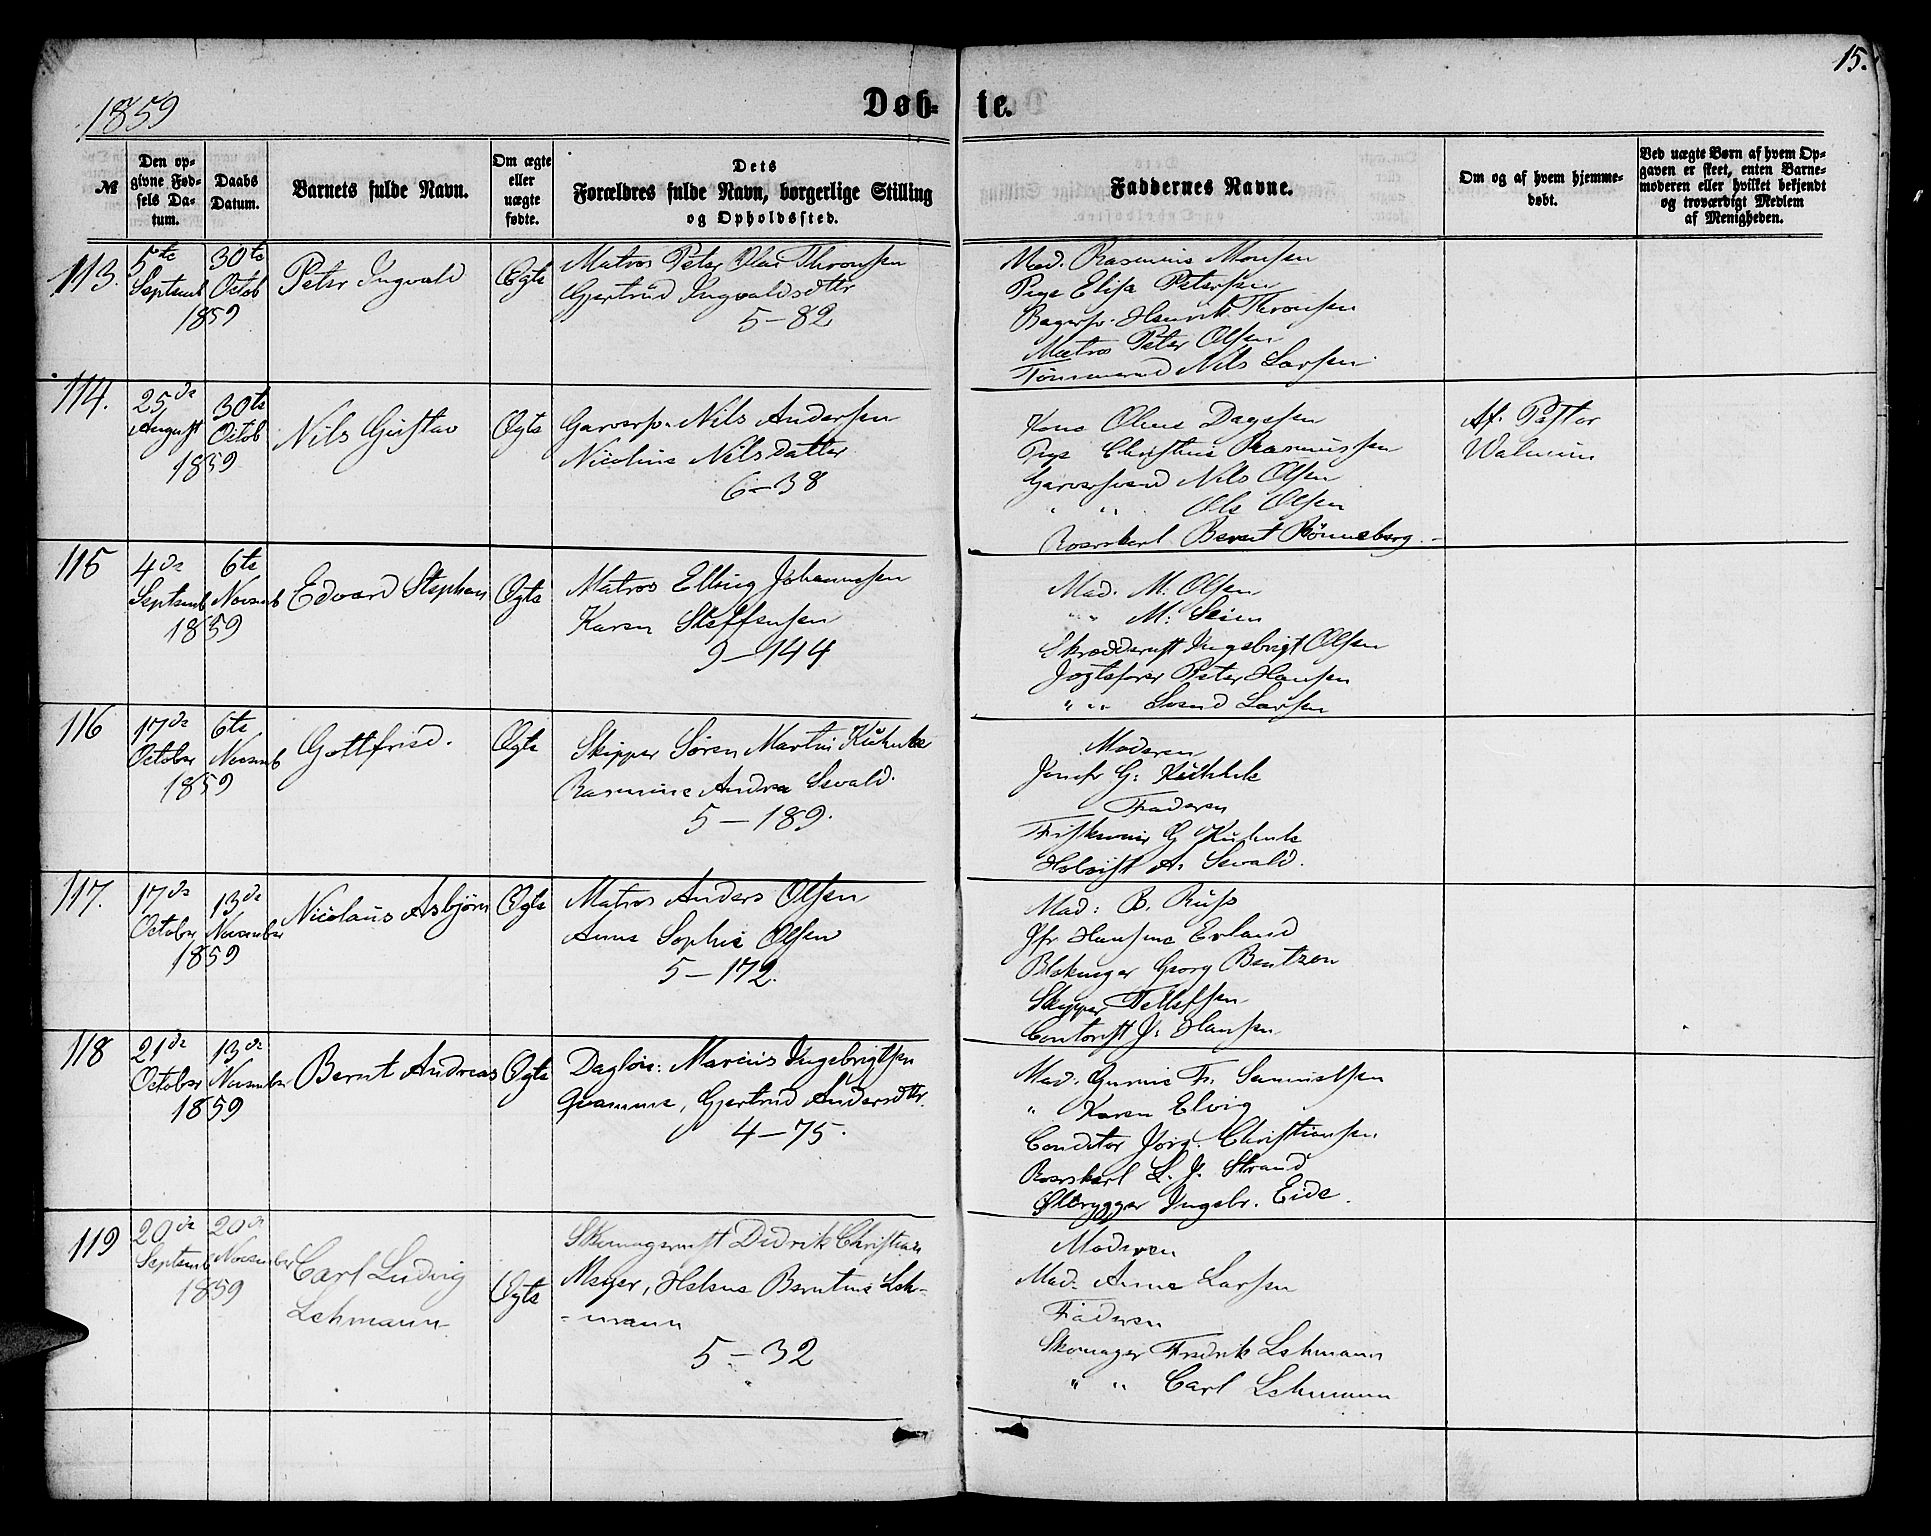 15.
1859
Døb-
te.
№
Den op-
givne Fød-
sels Da-
tum.
Daabs
Datum.
Barnets fulde Navn.
Om ægte
eller
uægte
fødte.
Dets
Forældres fulde Navn, borgerlige Stilling
og Opholdssted.
Faddernes Navne.
Om og af hvem hjemme-
døbt.
Ved uægte Børn af hvem Op-
gaven er skeet, enten Barne-
moderen eller hvilket bekjendt
og troværdigt Medlem
af Menigheden.
113.
5te
Septemb
1859
30te
Octob
Peter Ingvald
Ægte
Matros Peter Olai Thronsen
Gjertrud Ingvaldsdttr
5-82
Mad. Rasmus Monsen
Pige Elisa Petersen
Bagersv. Henrik Thronsen
Matros Peter Olsen
Tømmermd Nils Larsen
114.
25de
August
1859
30te
Octob
Nils Gustav
Ægte
Garversv. Nils Andersen
Nicoline Nilsdatter
6-38
Kone Oline Dagssen
Pige Christine Rasmussen
Garversvend Nils Olsen
" " Ole Olsen
Roerskarl Bernt Rønneberg.
Af. Pastor
Walnum
115
4de
Septemb
1859
6te
Novemb
Edvard Stephan
Ægte
Matros Elling Johannesen
Karen Steffensen
9-144
Mad. M. Olsen
" " M. Seim
Skræddermst Ingebrigt Olsen
Jagtefører Peter Hansen
" " Svend Larsen
116
17de
October
1859
6te
Novemb
Gottfried.
Ægte
Skipper Søren Martin Kuhnle
Rasmine Andrea Sevald.
5-189.
Moderen
Jomfr G. Kuhnle
Faderen
G Kuhnle
A. Sevald.
117.
17de
October
1859
13de
November
Nicolaus Asbjørn
Ægte
Matros Anders Olsen
Anne Sophie Olsen
5-172.
Mad: B. Russ
Jfr Hansine Erland
Georg Bentzen
Skipper Tellefsen
Contorist J. Hansen
118
21de
October
1859
13de
November
Bernt Andreas
Ægte
Dagløn: Marcus Ingebrigtsen
Qvamme, Gjertrud Andersdttr.
4-75.
Mad. Gurine Fr. Samuelsen
" Karen Elvig
Conditor Jørg. Christiansen
Roerskarl L. J. Strand
Ølbrygger Ingebr. Eide.
119
20de
Septemb
1859
20de
November
Carl Ludvig
Lehmann
Ægte
Skomagermst Didrik Christian
Meyer, Helene Berntine Leh-
-mann
5-32
Moderen
Mad. Anne Larsen
Faderen
Skomager Fredrik Lehmann
" " Carl Lehmann